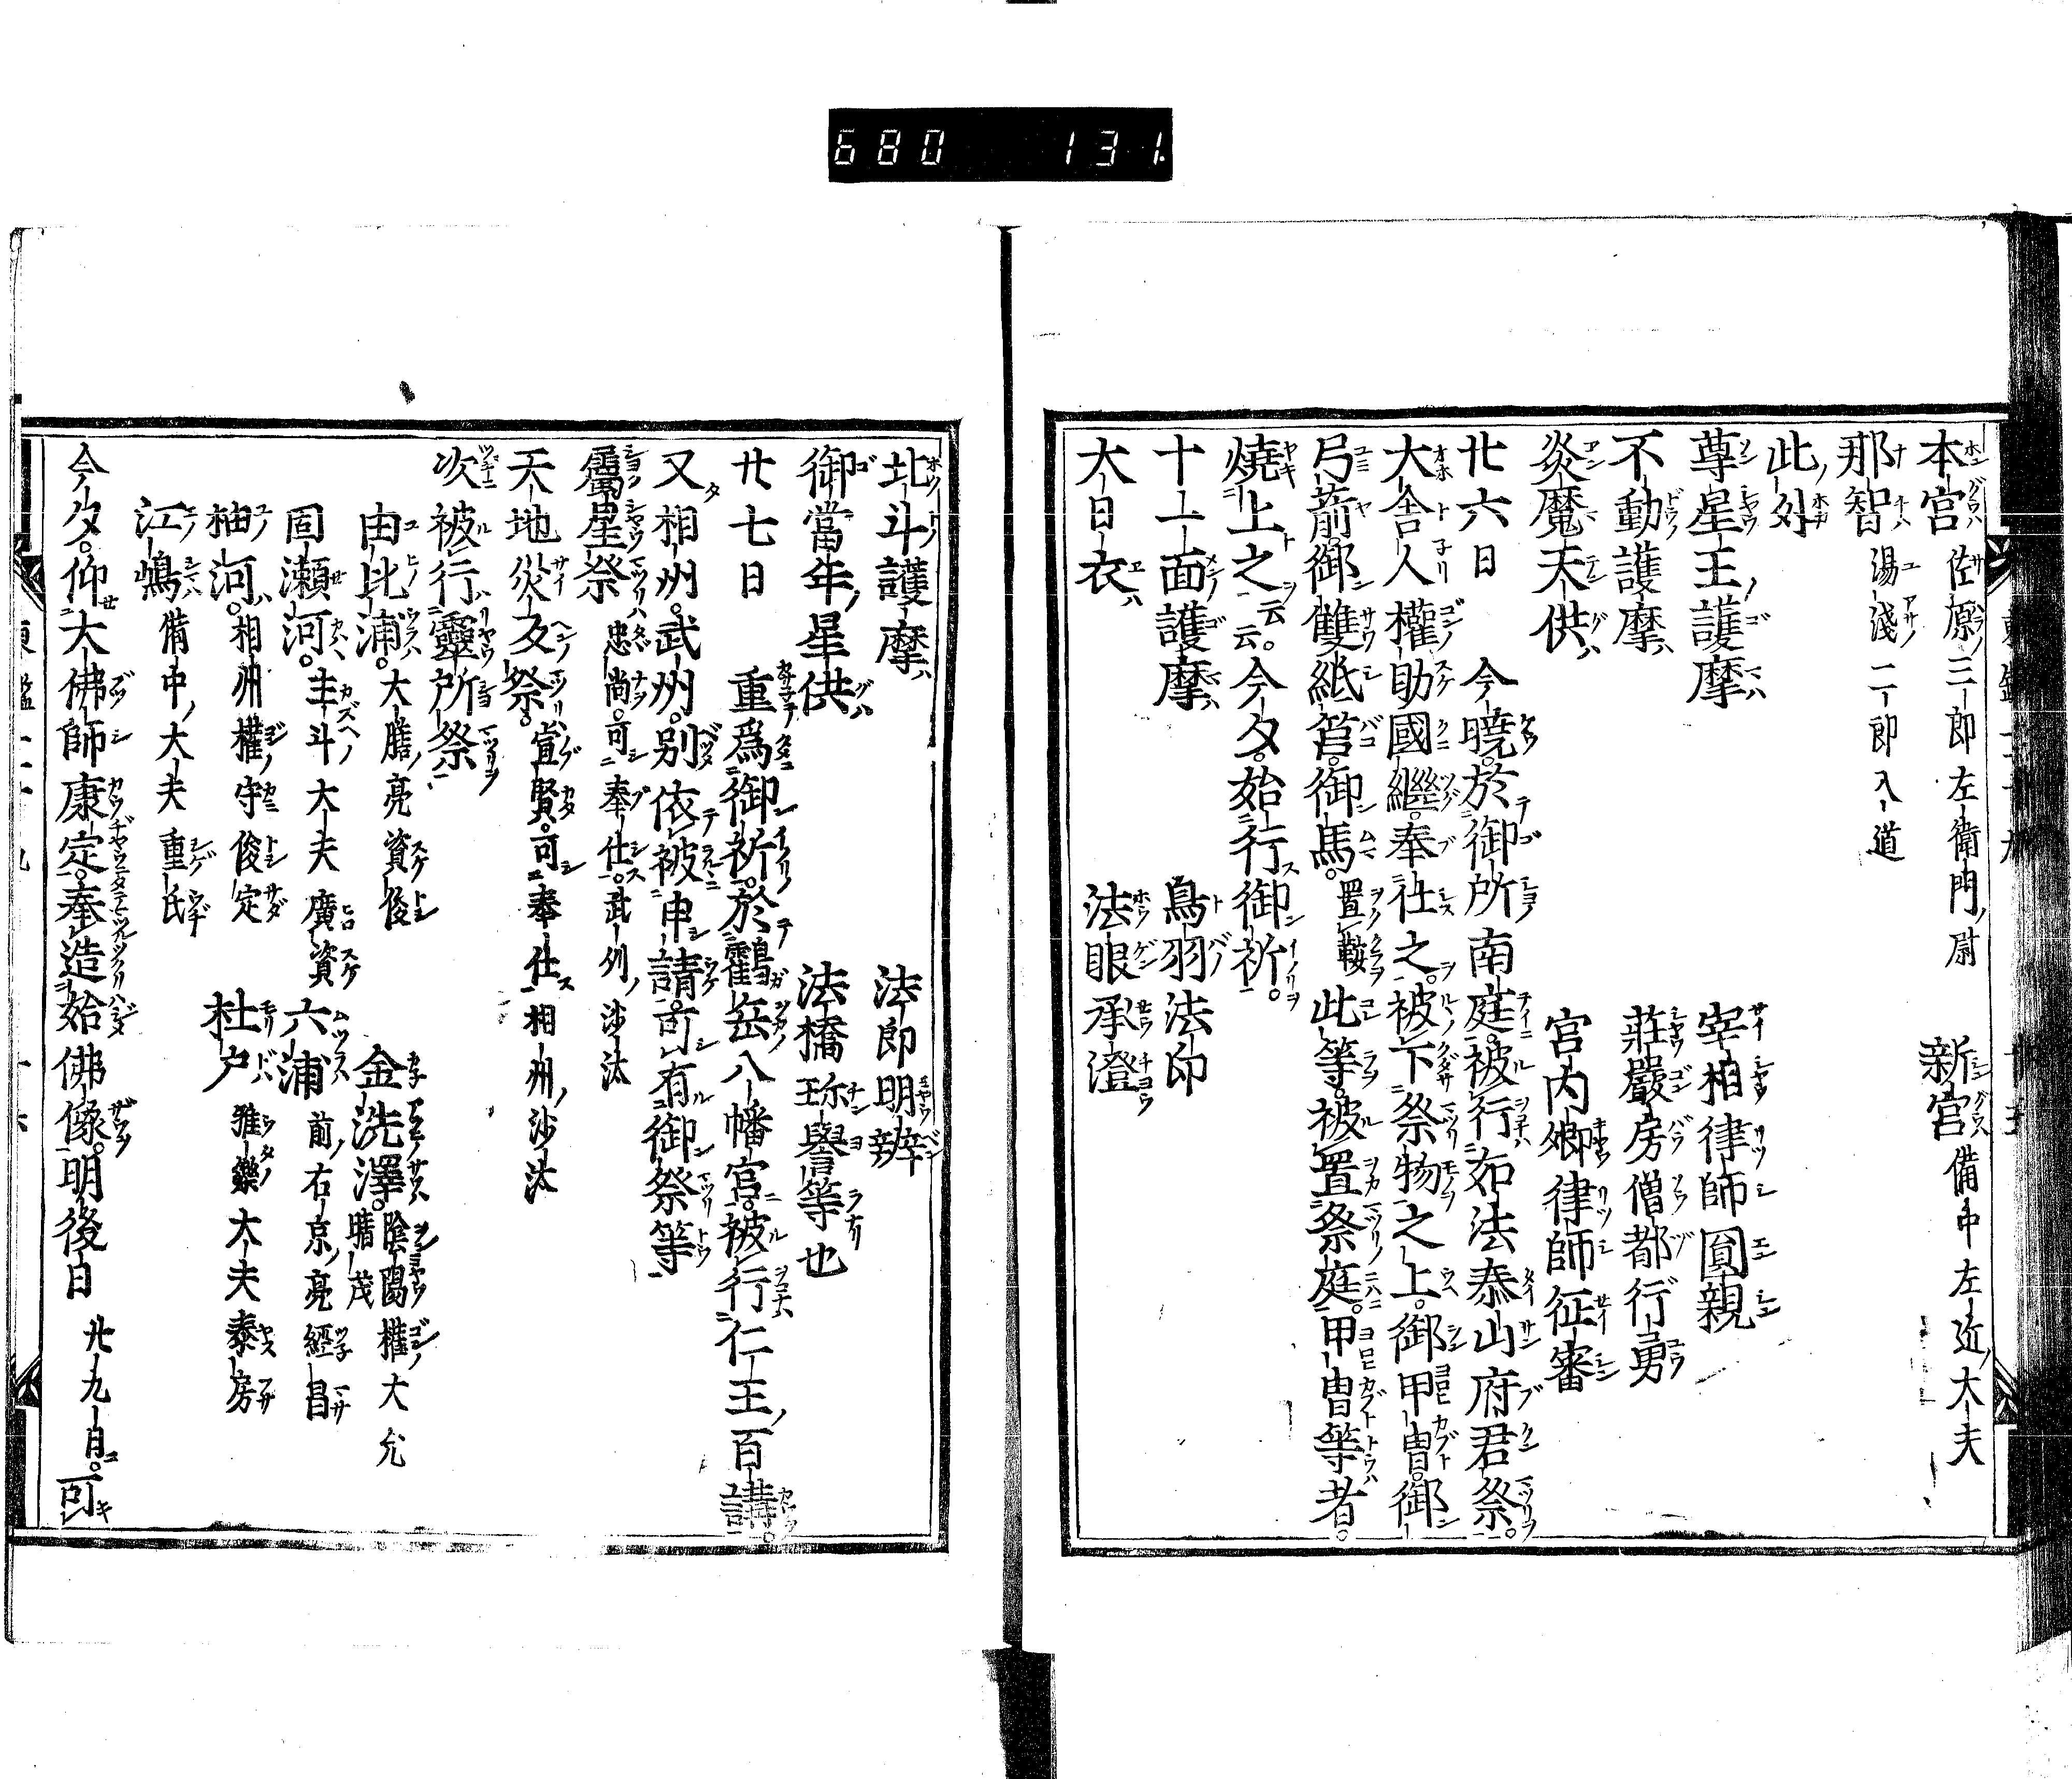 680 131.
本宮 佐原三郎左衛門尉 新宮 備中左近大夫
那智 湯淺二郎入道
此外
尊星王護摩 宰相律師圓親
不動護摩 莊嚴房僧都行勇
炎魔天供 宮内卿律師征審
廿六日 今曉。於御所南庭。被行如法泰山府君祭。
大舍人權助國繼。奉仕之。被下祭物之上。御甲冑。御
弓箭。御雙紙筥。御馬。置鞍此等。被置祭庭。甲冑等者。
燒上之云云。今夕。始行御祈。
十一面護摩 鳥羽法印
大日衣 法眼承澄
北斗護摩 法印明辨
御當年星供 法橋珎譽等也
廿七日 重爲御祈。於靏岳八幡宮。被行仁王百講。
又相州。武州。別依被申請。可有御祭等
屬星祭 忠尚。可奉仕。武州沙汰
天地災変祭。宣賢。可奉仕。相州沙汰
次被行靈所祭
由比浦。大膳亮資俊 金洗澤。陰陽權大允晴茂
固瀨河。主斗大夫廣資 六浦 前右京亮經昌
柚河。相州權守俊定 杜戸 雅樂大夫泰房
江嶋 備中大夫重氏
今夕。仰大佛師康定。奉造始佛像。明後日 廿九日。可